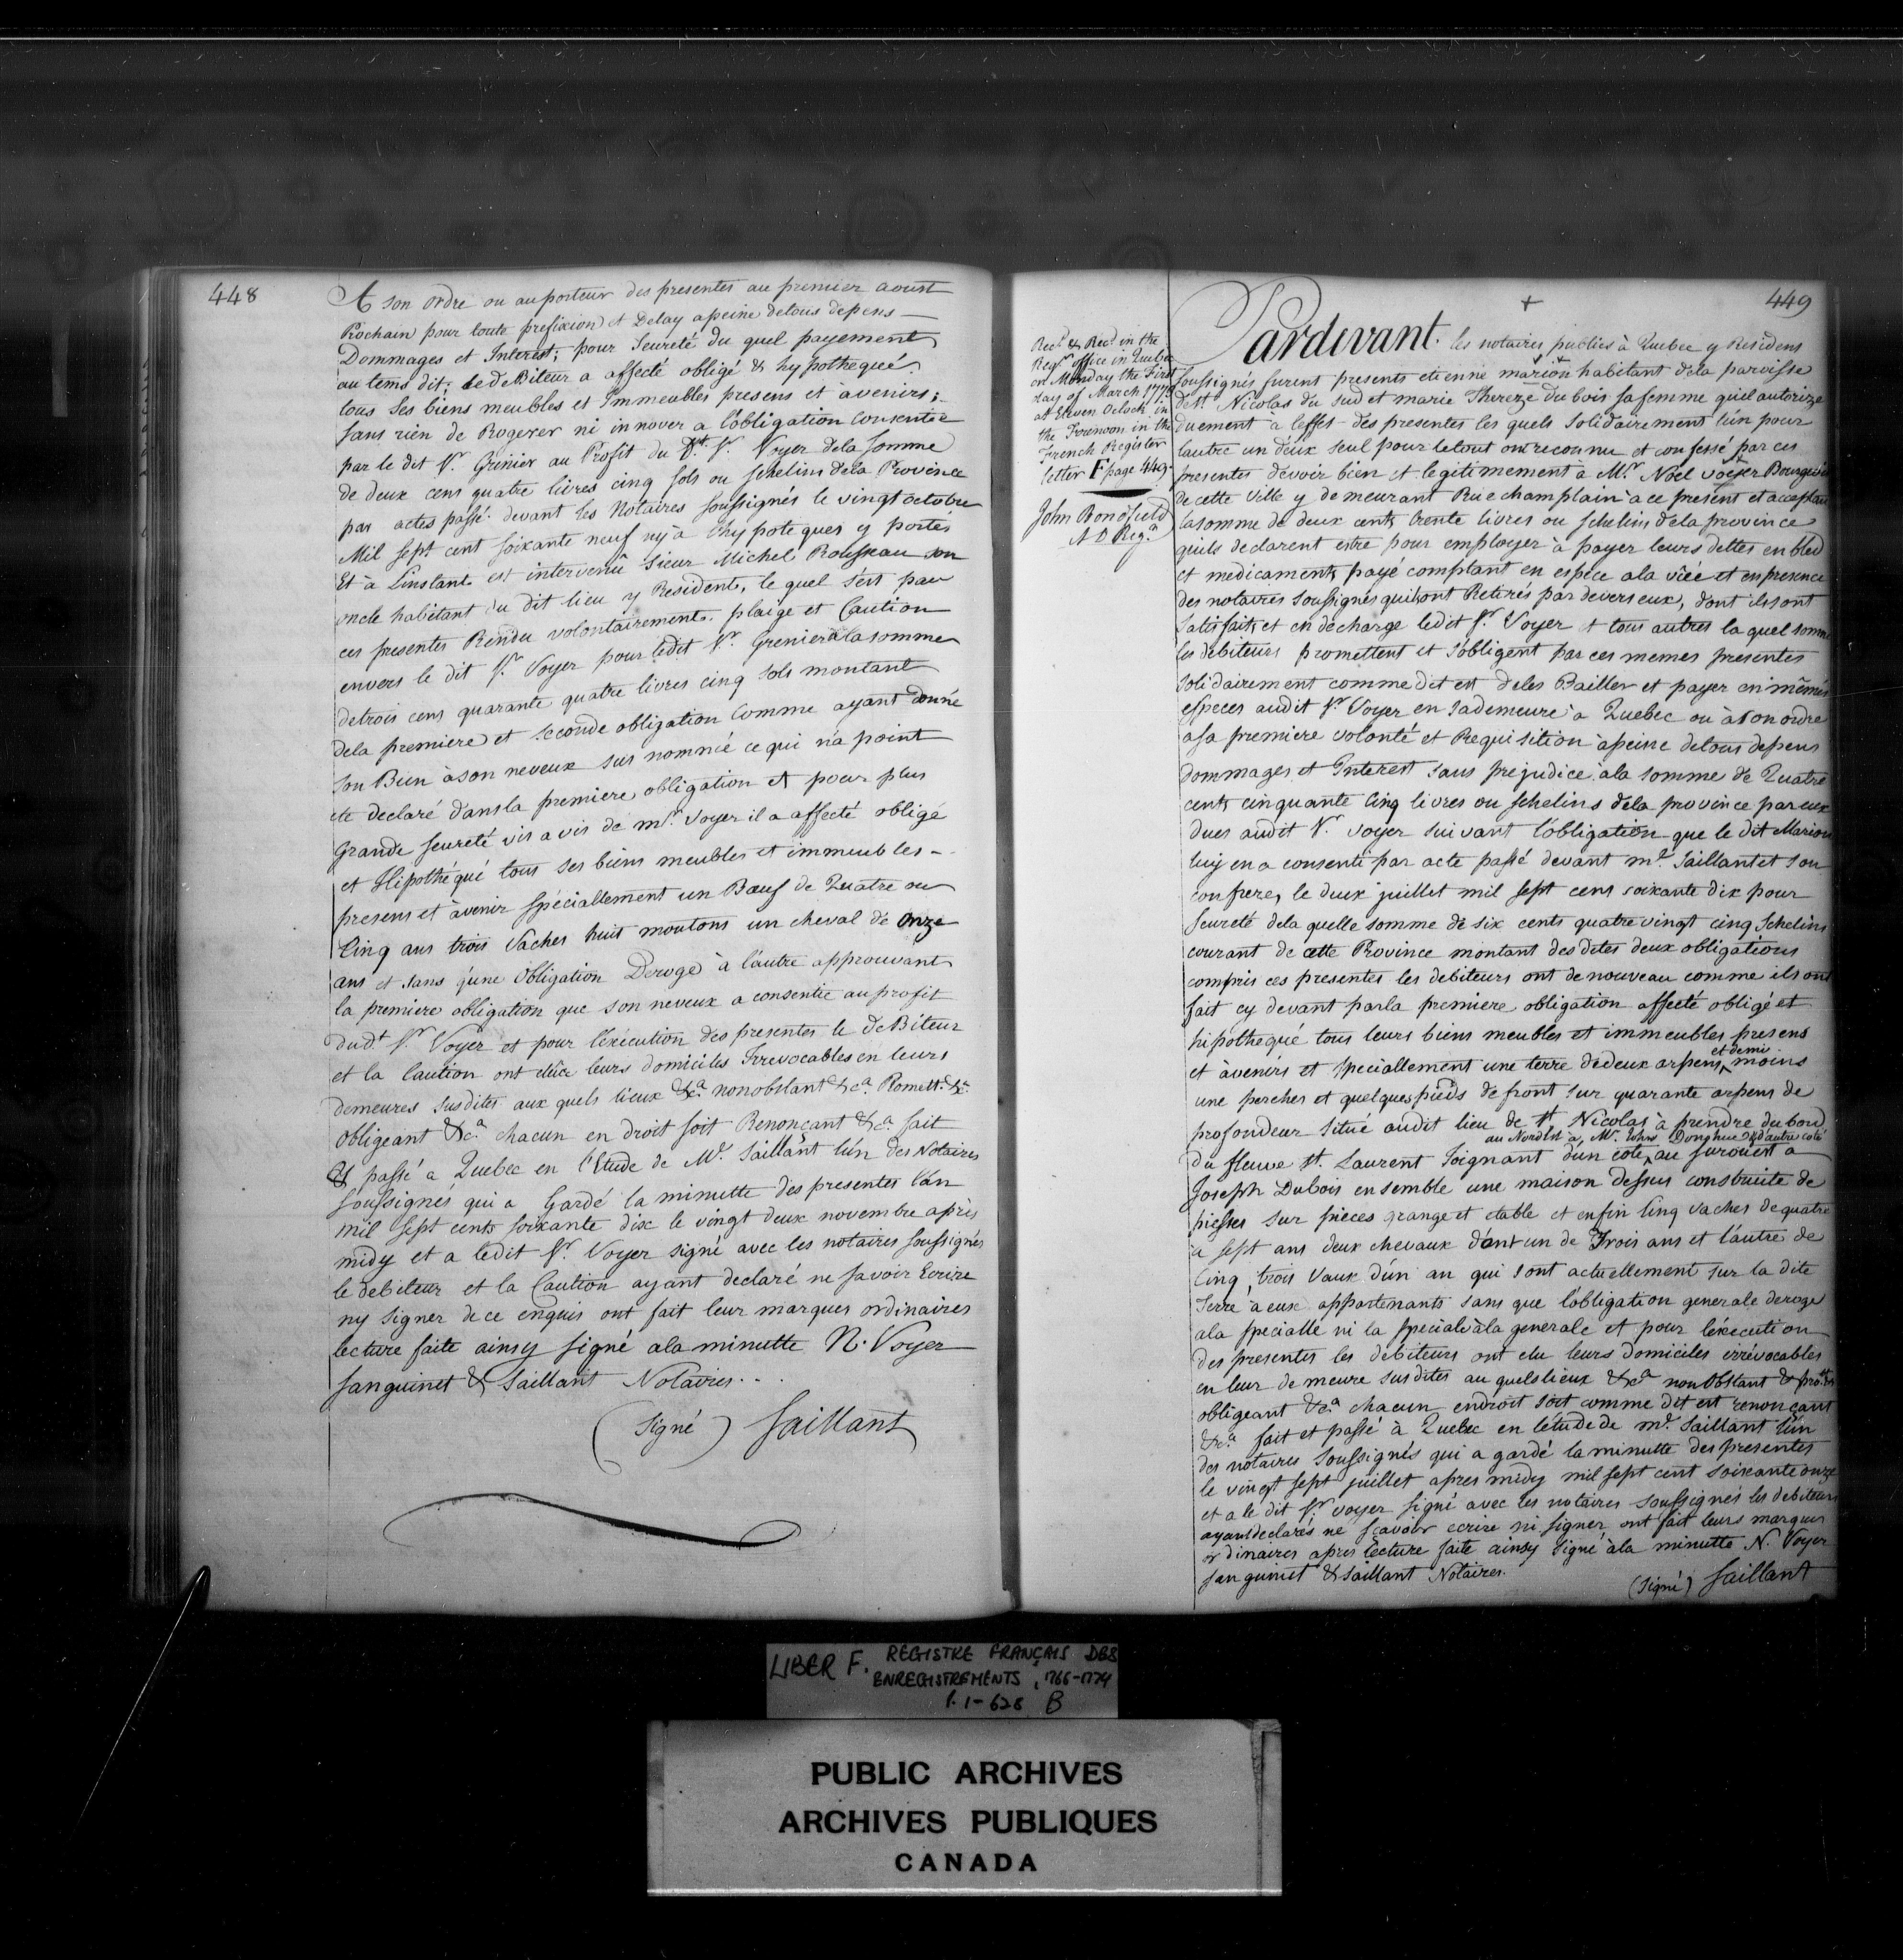 448
A son ordre ou au porteur des presentes au premier aoust
Prochain pour toute prefixion et Delay apeine detous depens
Dommages et Interest; pour seureté du quel payement
au tems dit. le deBiteur a affecté obligé & hypothequé
tous ses biens meubles et Immeubles presens et àvenirs;
sans rien de Rogerer ni innover a lóbligation consentie
par le dit Sr. Grenier au Profit du dt. Sr. Voyer dela somme
de deux cens quatre livres cinq sols ou schelins dela Province
par actes passé devant les Notaires soussignés le vingt octobre
Mil sept cent soixante neuf ny à Lhypoteques y portés
Et à Linstant est intervenû Sieur Michel Rousseau son
oncle habitant du dit lieu y Resident, le quel sést par
ces presentes Rendu volontairement plaige et Caution
envers le dit Sr. Voyer pour ledit Sr. Grenier à la somme
detrois cens quarante quatre livres cinq sols montant
dela premiere et seconde obligation comme ayant donné
son Bien àson neveux sus nommé ce qui n'a point
ete declaré dansla premiere obligation et pour plus
Grande seureté vis avis de mr. Voyer il a affecté obligé
et Hipothéqué tous ses biens meubles et immeubles
presens et àvenir spéciallement un Bœuf de Quatre ou
Cinq ans trois Vaches huit moutons un cheval de onze
ans et sans q'une Obligation Deroge à l'autre approuvant
la premiere obligation que son neveux a consentie au profit
dud.t Sr. Voyer et pour léxécution des presentes le deBiteur
et la Caution ont élûe leurs domiciles Irrevocables en leurs
demeures susdites aux quels lieux &c.a nonobstant &c.a Promett. &c.
obligeant &c.a chacun en droit soit Renonçant &c.a fait
& passé a Quebec en l'Etude de Me. Saillant lún des Notaires
soussignés qui a Gardé la minutte des presentes Lán
mil sept cents soixante dix le vingt deux novembre après
midy et a ledit Sr. Voyer signé avec les notaires soussignés
le debiteur et la Caution ayant declaré ne savoir Ecrire
ny signer dece enquis ont fait leur marques ordinaires
lecture faite ainsy signé ala minutte N. Voyer
Sanguinet & Saillant Notaires..
(signé) Saillant
449
Rec.d & Rec.d in the
Reg.rs office in Quebec
on Monday the First
day of March 177
at Eleven Oclock in
the Forenoon in the
French Register
letter F page 449.
John Bonnfield
A D Reg.r
Pardevant. les notaires publics à Quebec y Residens
soussignés furent presents etienne marion habitant dela paroisse
de St. Nicolas du sud et marie Thereze dubois sa femme quil autorize
duement a leffet des presentes les quels solidairement lún pour
lautre un deux seul pour letout ont reconnu et confessé par ces
presentes devoir bien et legitimement a Mr. Noël voyer Bourgeois
de cette ville y demeurant Rue champlain a ce present et acceptant
lasomme de deux cents trente livres ou schelins dela province
quils declarent estre pour employer à payer leurs dettes en bled
et medicaments payé comptant en espéce ala vûe et en presence
des notaires soussignés quils ont Retirés par devers eux, dont ils sont
satisfaits et en decharge ledit Sr. Voyer et tous autres la quel somme
les debiteurs promettent et sobligent par ces memes presentes
solidairement comme dit est deles Bailler et payer en mêmes
especes audit Sr. Voyer en sademeure a Quebec ou àson ordre
asa premiere volonté et Requisition àpeine detous depens
dommages et Interest sans prejudice àla somme de Quatre
cents cinquante cinq livres ou schelins dela province par eux
dues audit Sr. voyer suivant lóbligation que le dit Marion
luy en a consenti par acte passé devant me. Saillant et son
confrere, le deux juillet mil sept cens soixante dix pour
seureté dela quelle somme de six cents quatre vingt cinq schelins
courant de cette Province montant desdites deux obligations
compris ces presentes les debiteurs ont de nouveau comme ils ont
fait cy devant parla premiere obligation affecté obligé et
hipothequé tous leurs biens meubles et immeubles presens
et àvenirs et speciallement une terre dedeux arpens et demie moins
une perches et quelques pieds de front sur quarante arpens de
profondeur situé audit lieu de St. Nicolas à prendre du bord
du fleuve St. Laurent Joignant dún coté au Nordést à Mr. Donghue & d'autre coté au surouest a
Joseph Dubois ensemble une maison dessus construite de
piesses sur pieces grange et etable et enfin cinq vaches de quatre
a sept ans deux chevaux dont un de Trois ans et láutre de
Cinq, trois Vaux dún an qui sont actuellement sur la dite
Terre a eux appartenants sans que lóbligation generale deroge
ala specialle ni la speciale àla generale et pour léxecution
des presentes les debiteurs ont elu leurs domiciles irrévocables
en leur demeure susdites au quels lieux &c.a nonobstant &
obligeant &c.a chacun endroit soit comme dit est renonçant
&c.a fait et passé à Quebec en létude de me. Saillant lún
des notaires soussignés qui a gardé la minutte des presentes
le vingt sept juillet apres midy mil sept cent soixante onze
et a le dit Sr. voyer signé avec les notaires soussignés les debiteurs
ayant declarés ne sçavoir ecrire ni signer ont fait leurs marques
ordinaires apres lecture faite ainsy signé àla minutte N. Voyer
Sanguinet & Saillant Notaires.
(signé) Saillant
LIBER F. REGISTRE FRANÇAIS DES
ENREGISTREMENTS, 1766-1774
P. 1-628 B
PUBLIC ARCHIVES
ARCHIVES PUBLIQUES
CANADA